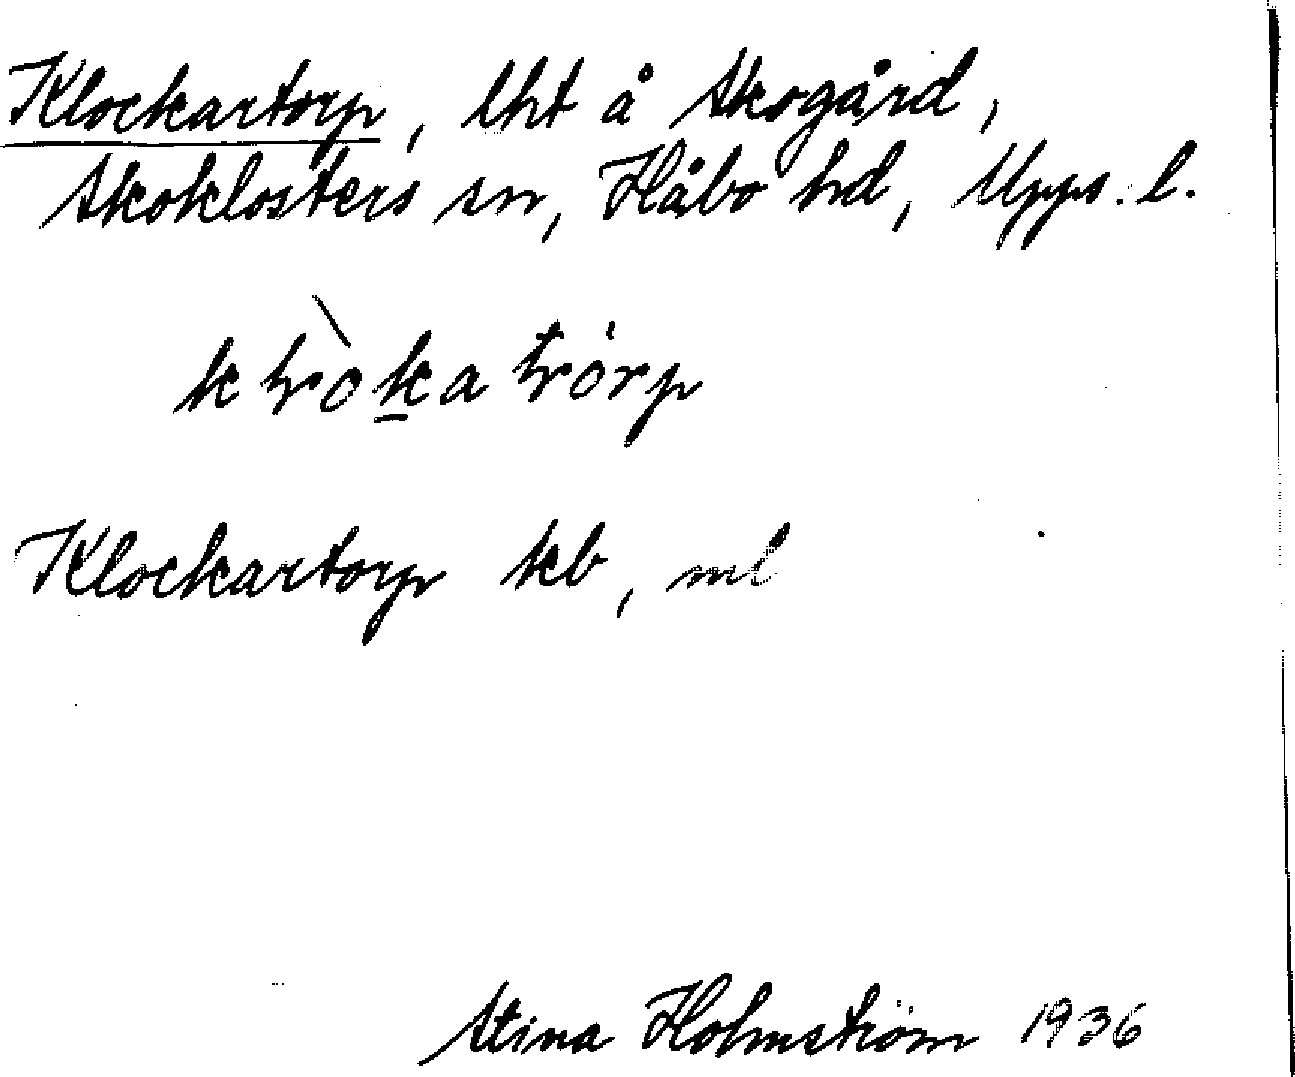 Klockartorp, lht å Skogård,
Skoklosters sn, Håbo hd, Upps. l.
Klockartorp kb, ml
Stina Holmström 1936